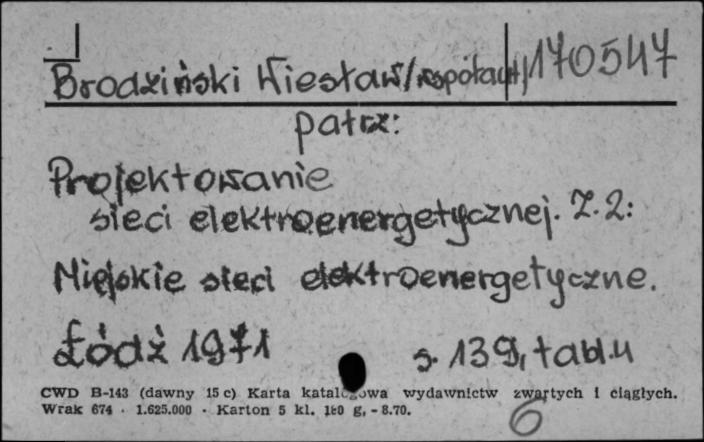 Brodziński Wiesław /współaut/ 170547
patrz:
Projektowanie
sieci elektroenergetycznej. Z. 2:
Miejskie sieci elektroenergetyczne.
Łódź 1971 s. 139, tabl. 4
CWD B-143 (dawny 15 c) Karta katalogowa wydawnictw zwartych i ciągłych.
Wrak 674 · 1.625.000 · Karton 5 kl. 180 g, - 8.70.
6